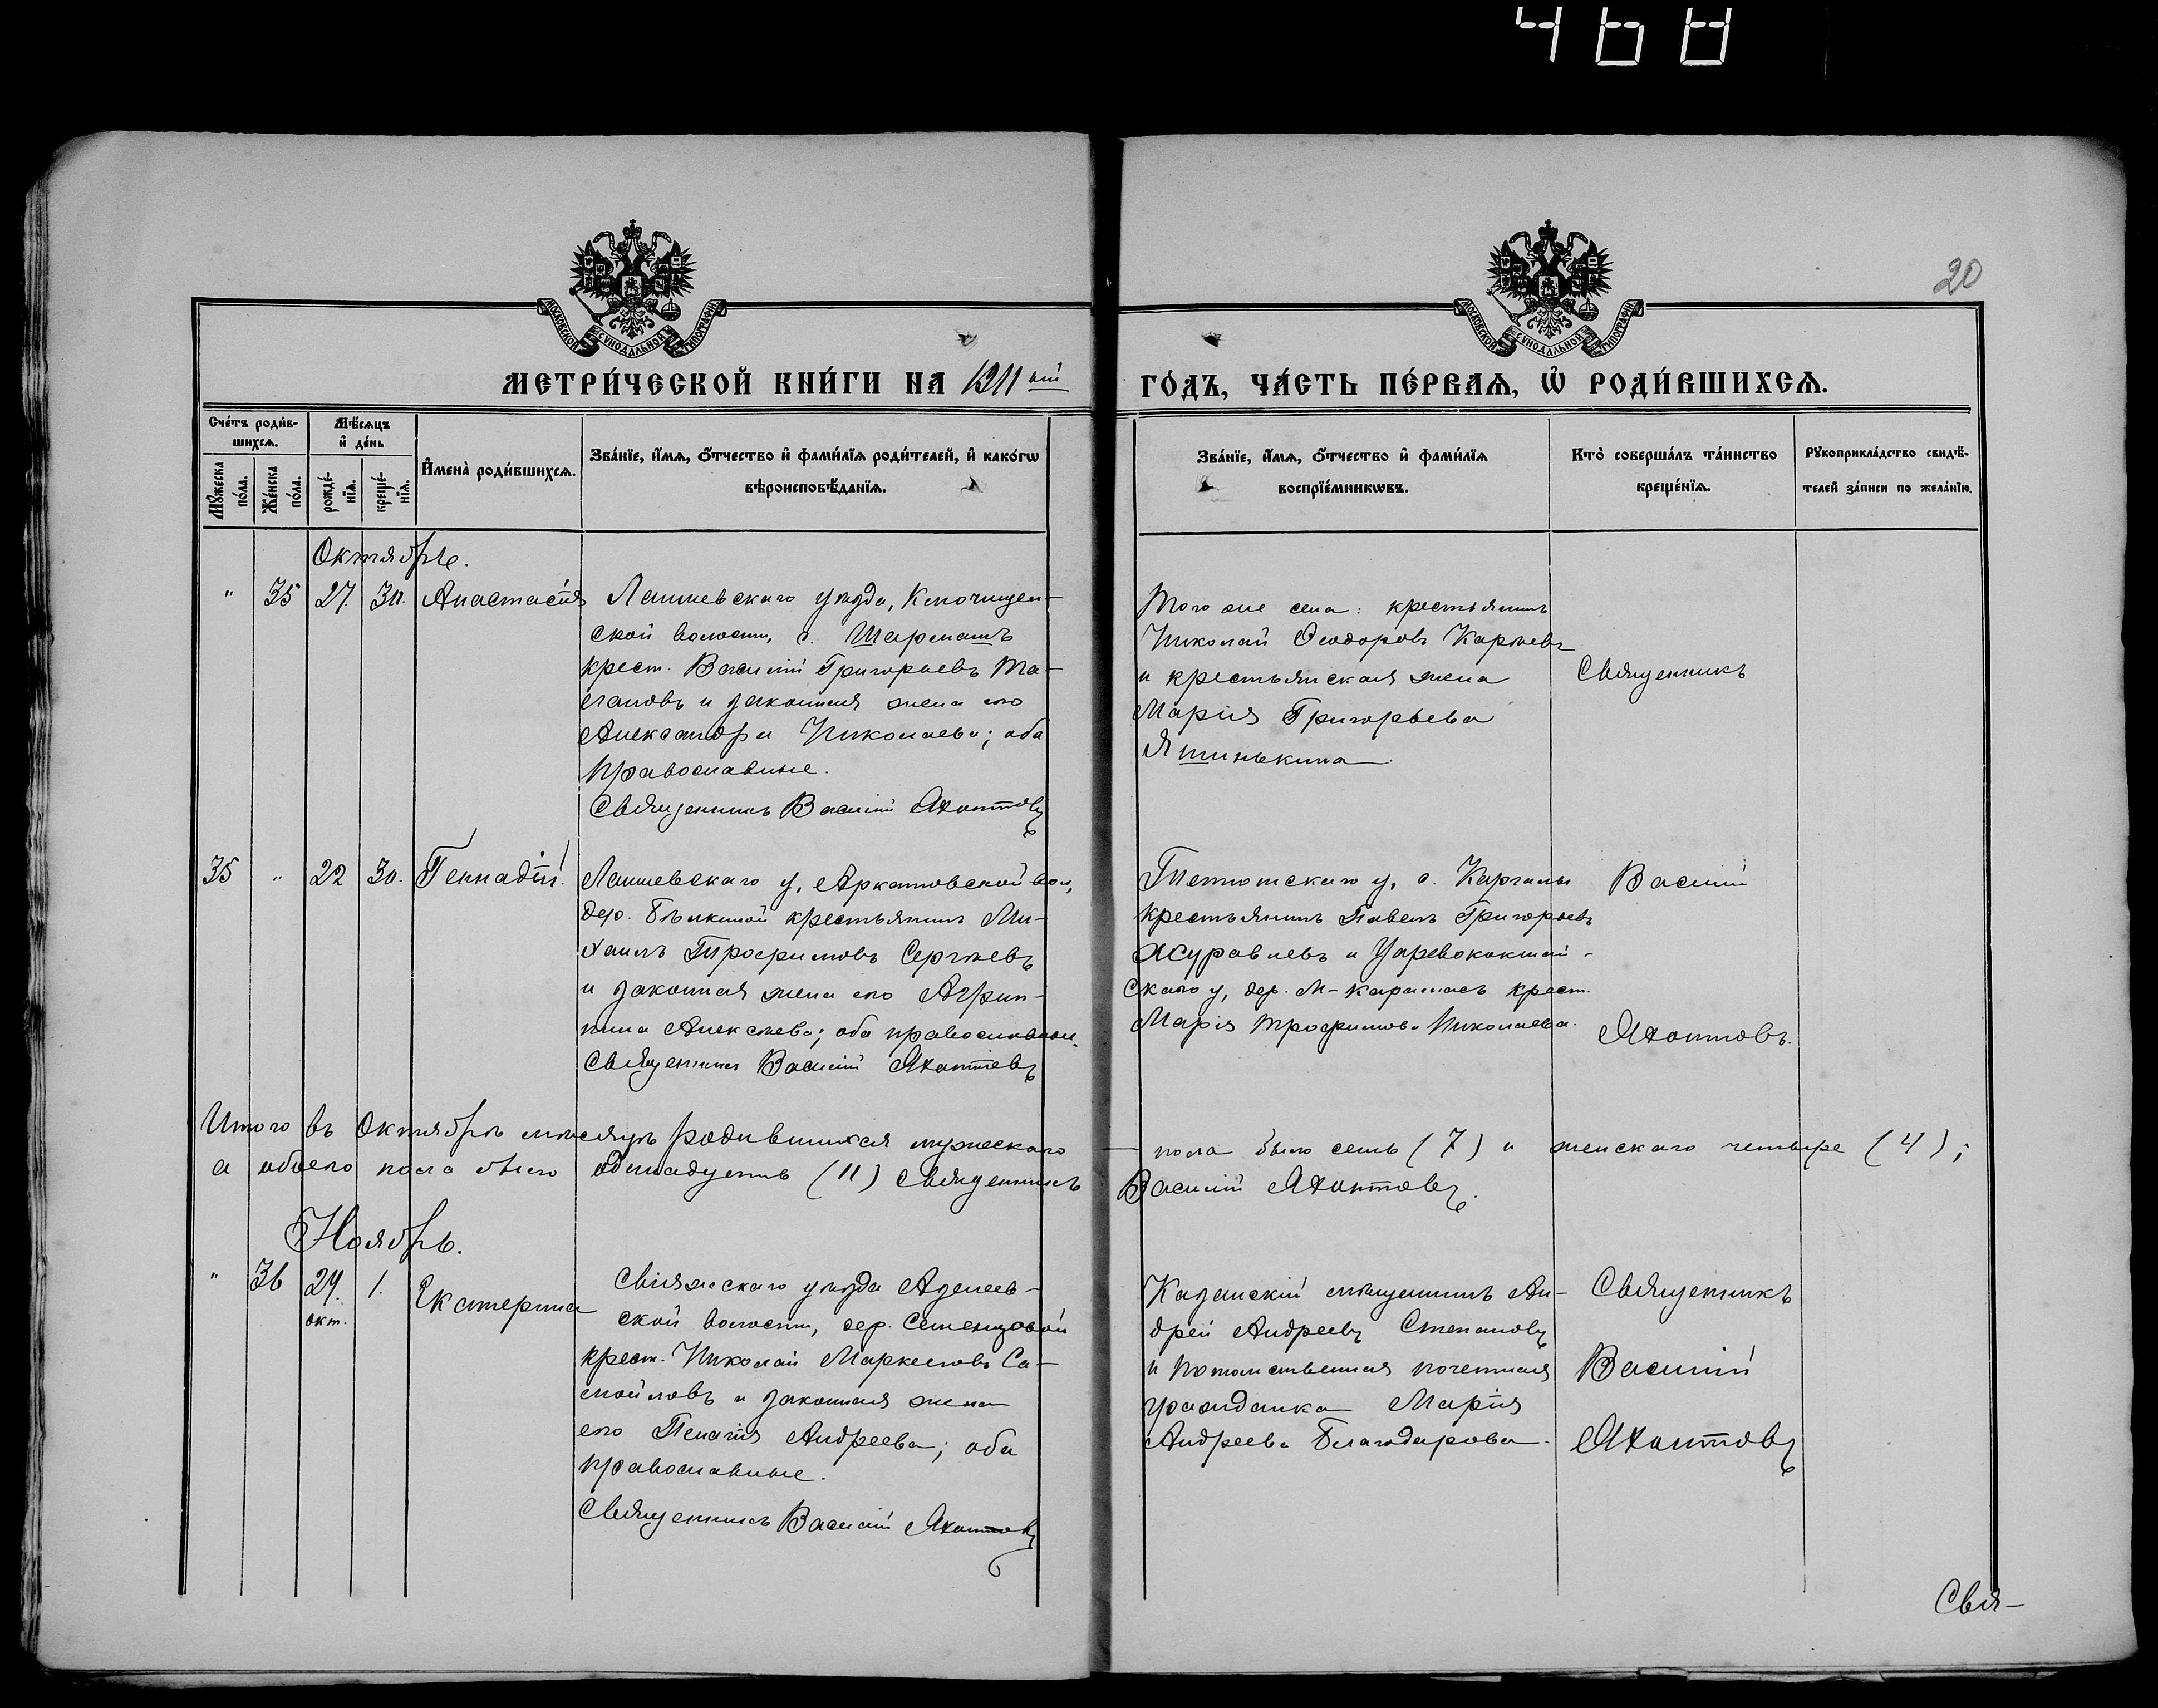 468
20
МОСКОВСКОЙ СѴНОДАЛЬНОЙ ТИПОГРАФІИ
МОСКОВСКОЙ СѴНОДАЛЬНОЙ ТИПОГРАФІИ
МЕТРИ́ЧЕСКОЙ КНИ́ГИ НА 1911 ый
ГО́ДЪ, ЧА́СТЬ ПЕ́РВАѦ, Ѡ҆ РОДИ́ВШИХСѦ.
Сче́тъ роди́в-
шихсѧ.
Мѣ́сѧцъ
и҆ де́нь
Мꙋ́жеска по́ла.
Же́нска по́ла.
рожде́-нїѧ.
креще́-нїѧ.
И҆мена̀ роди́вшихсѧ.
Зва́нїе, и҆́мѧ, ѻ҆́тчество и҆ фами́лїѧ роди́телей, и҆ како́гѡ
вѣроисповѣ́данїѧ.
Зва́нїе, и҆́мѧ, ѻ҆́тчество и҆ фами́лїѧ
воспрїе́мникѡвъ.
Кто̀ соверша́лъ та́инство
креще́нїѧ.
Рꙋкоприкла́дство свидѣ́-
телей за́писи по жела́нїю.
Октябрь.
" 35 27. 30. Анастасія
Лаишевскаго уѣзда, Ключищен-
ской волости, с. Шармашъ
крест. Василій Григорьевъ
и законная жена его
Александра Николаева; оба
православные.
Священникъ Василій Яхонтовъ
Того же села: крестьянинъ
Николай Ѳеодоровъ Карѣевъ
и крестьянская жена
Марія Григорьева
Яшинькина
Священникъ
35 " 22 30. Геннадій.
Лаишевскаго у, Аркатовской вол,
дер. Бѣлкиной крестьянинъ Ми-
хаилъ Трофимовъ Сергѣевъ
и законная жена его Агрип-
пина Алексѣева; оба православные.
Священникъ Василій Яхонтовъ
Тетюшскаго у, с. Каргалы
крестьянинъ Павелъ Григорьевъ
Журавлевъ и Царевококшай-
скаго у, дер. М-Карамасъ крест.
Марія Трофимова Николаева.
Василій
Яхонтовъ.
Итого въ Октябрѣ мѣсяцѣ родившихся мужескаго
пола было семь (7) и женскаго четыре (4);
а обоего пола было одиннадцать (11) Священникъ
Василій Яхонтовъ.
Ноябрь.
" 36 24. 1. Екатерина
окт.
Свіяжскаго уѣзда Азелеев-
ской волости, дер. Семенцовой
крест. Николай Маркеловъ Са-
мойловъ и законная жена
его Пелагія Андреева; оба
православные.
Священникъ Василій Яхонтовъ
Казанскій мѣщанинъ Ан-
дрей Андреевъ Степановъ
и потомственная почетная
гражданка Марія
Андреева Благодарова.
Священникъ
Василій
Яхонтовъ
Свя-